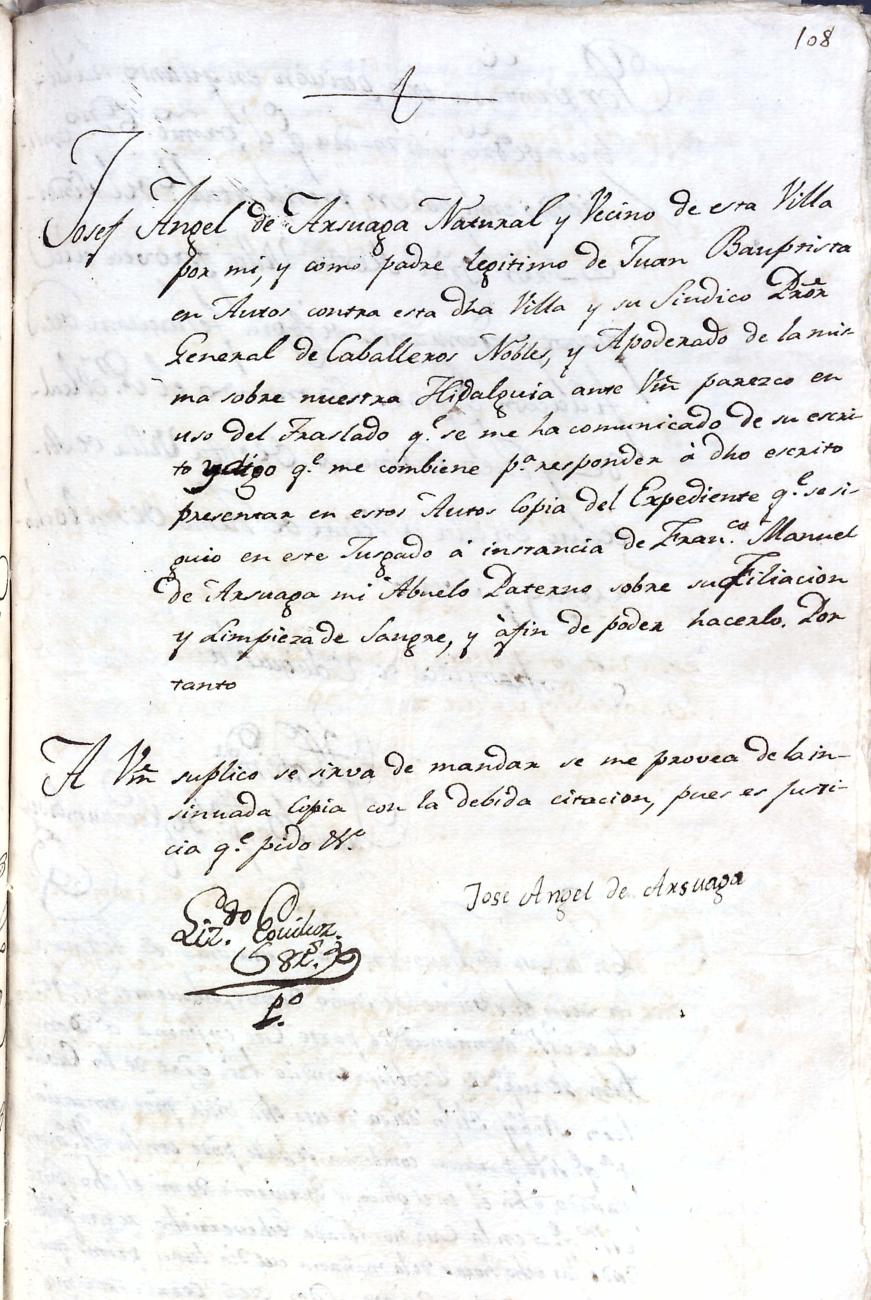 108
Josef Angel de Arsuaga Natural y Vecino de esta Villa
por mi, y como padre legitimo de Juan Bauptista
en Autos contra esta dha Villa y su Sindico Pror
General de Caballeros Nobles, y Apoderado de la mis-
ma sobre nuestra Hidalguia ante Vm parezco en
uso del Traslado q.e se me ha comunicado de su escri-
to y digo q.e me combiene p.a responder â dho escrito
presentar en estos Autos Copia del Expediente q.e se si-
guio en este Jusgado â instancia de Fran.co Manuel
de Arsuaga mi Abuelo Paterno sobre su Filiacion
y Limpieza de Sangre, y âfin de poder hacerlo. Por
tanto
A Vm suplico se sirva de mandar se me provea de la in-
sinuada Copia con la debida citacion, pues es justi-
cia q.e pido &.e
Jose Angel de Arsuaga
Liz.do
p.o